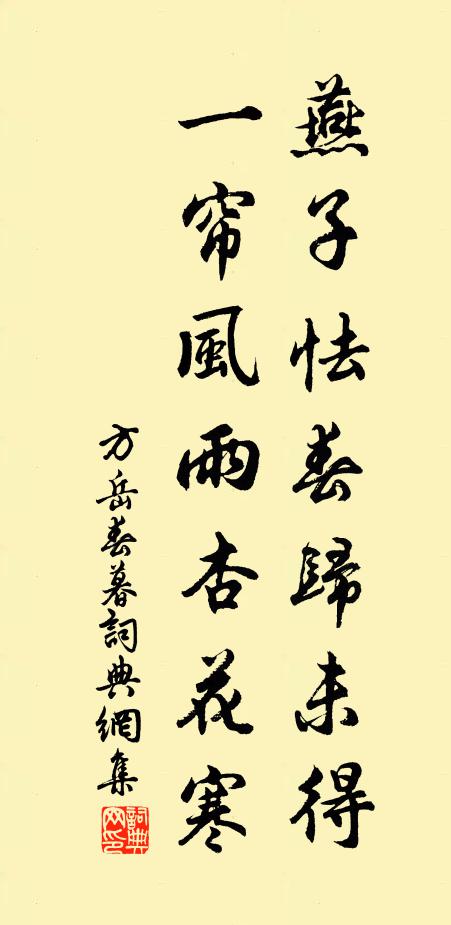 燕子怯春歸未得
一帘風雨杏花寒
方岳春暮詞典網集
詞典网印